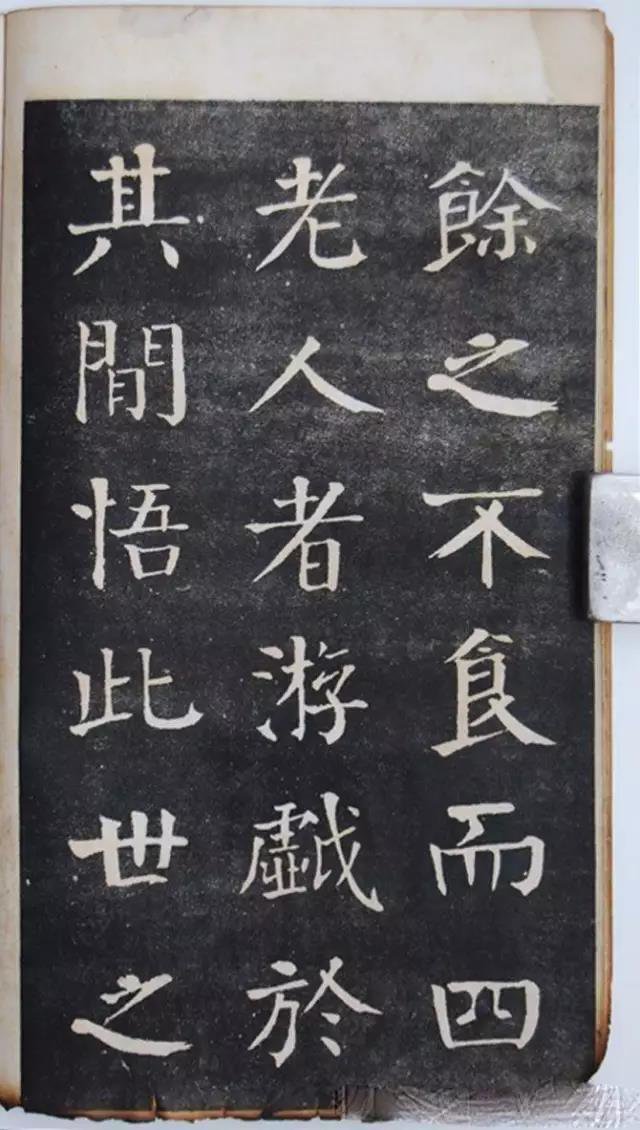 餘之不食而四
老人者游戱於
其間悟此世之